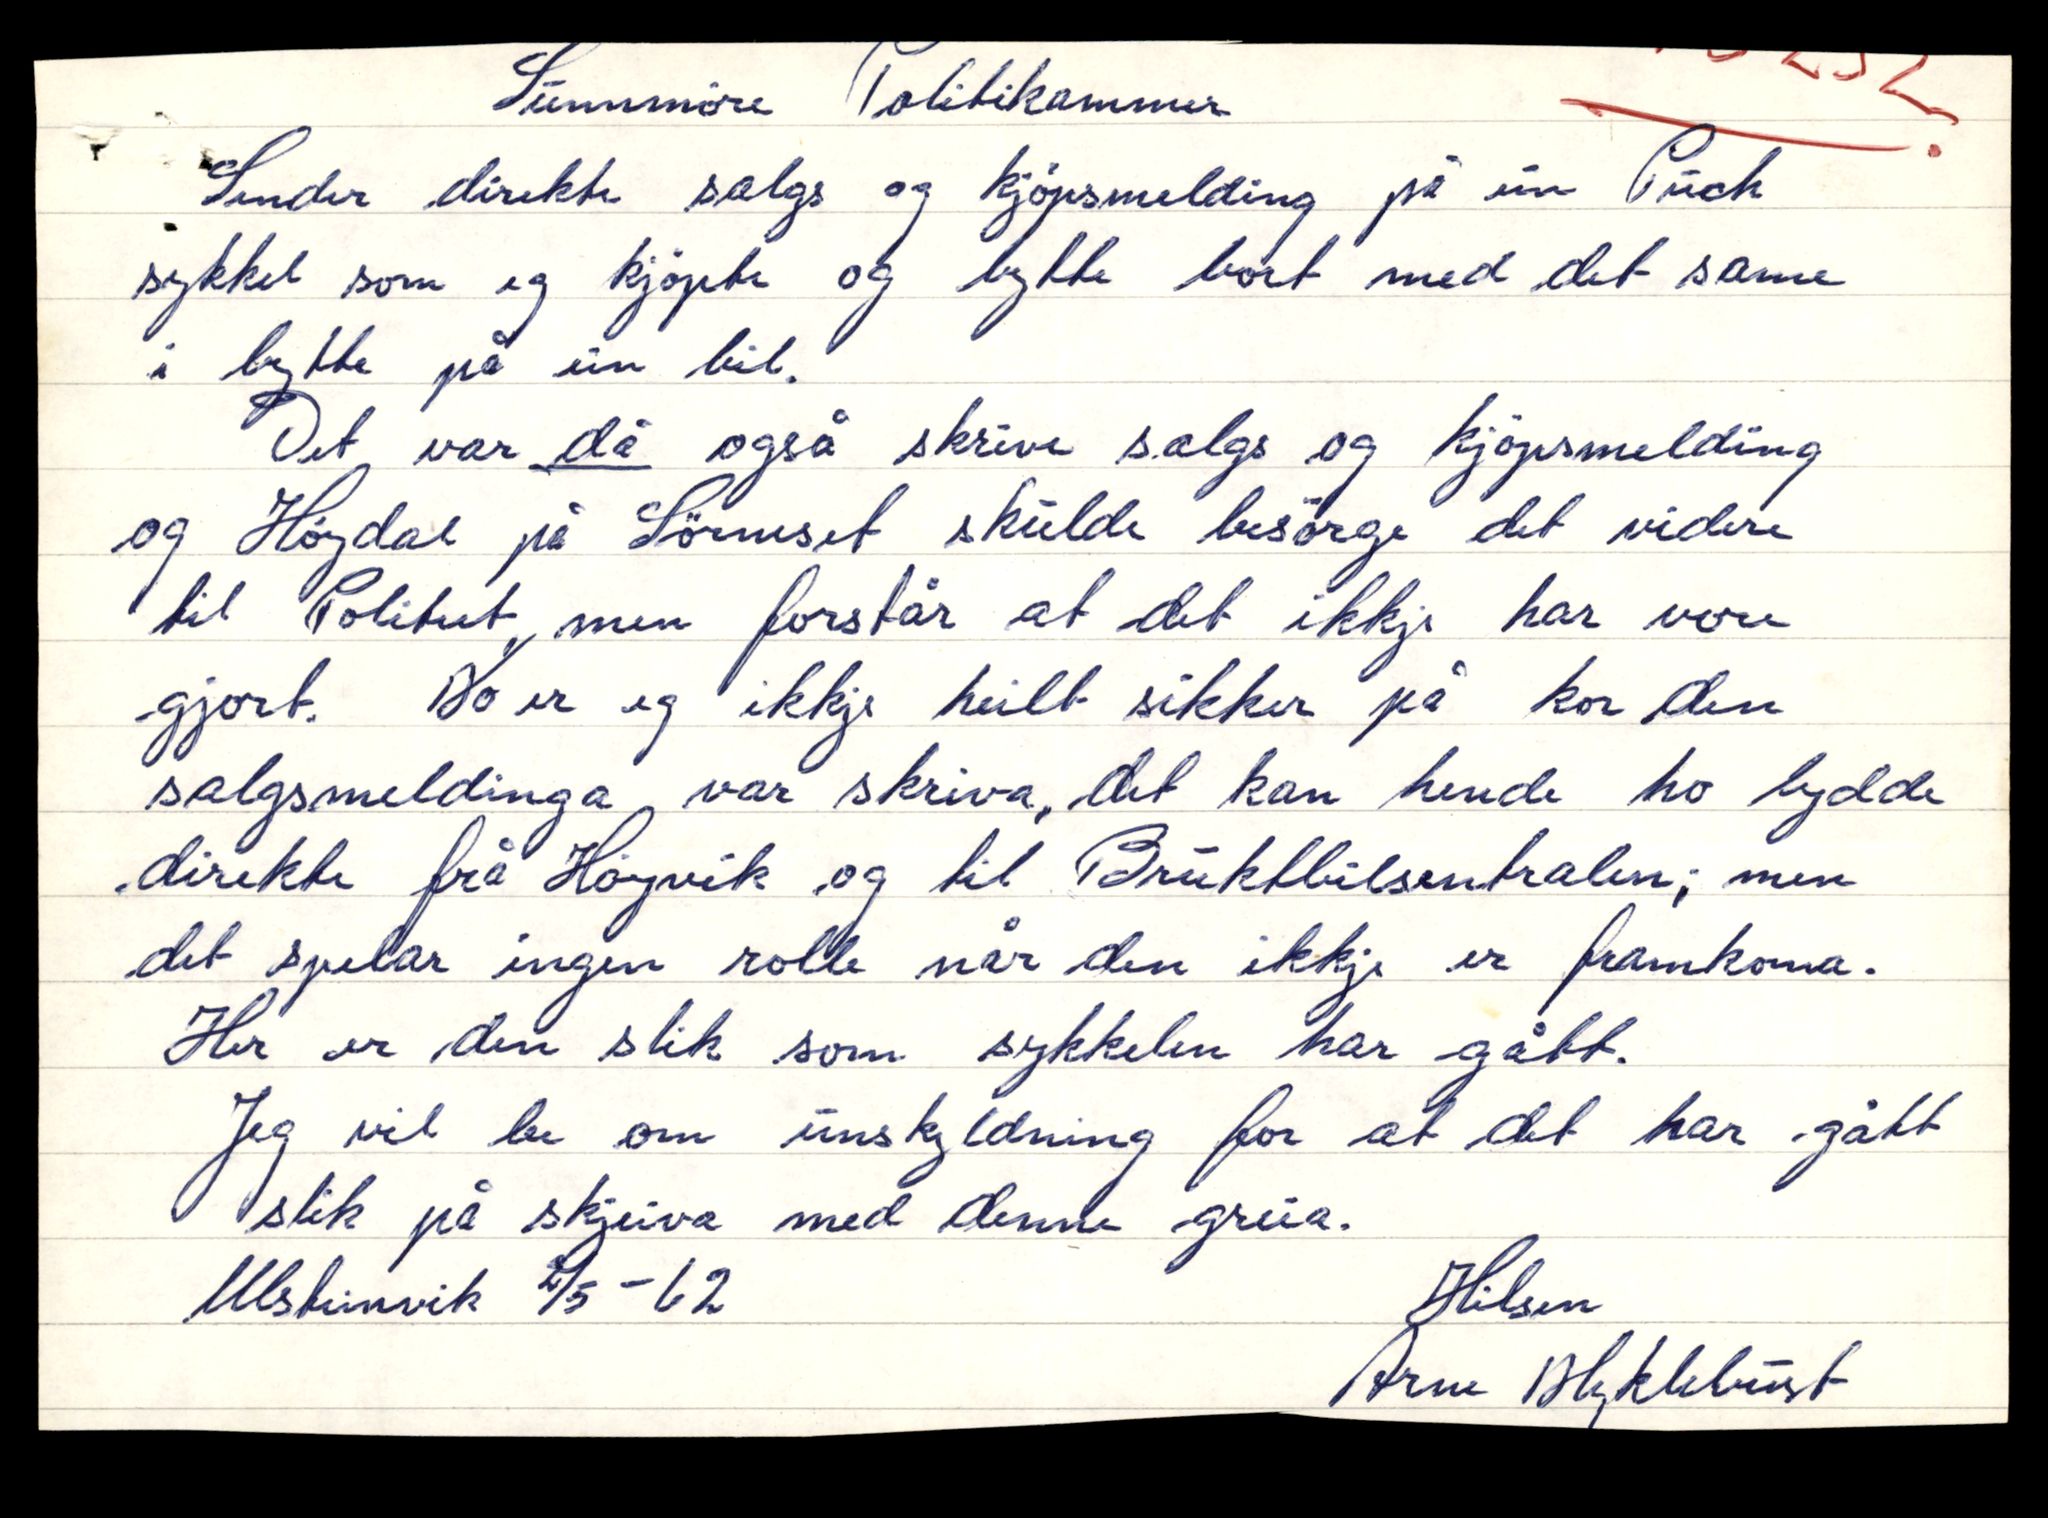 Sunnmöre Politikammer
Sender direkte salgs og kjöpsmelding på ein Puch
sykkel som eg kjöpte og bytte bort med det same
i bytte på ein bil.
Det var då også skrive salgs og kjöpsmelding
og Høydal på Sörneset skulde besörge det videre
til Politiet, men forstår at det ikkje har vore
gjort. No er eg ikkje heilt sikker på kor den
salgsmeldinga var skriva, det kan hende ho lydde
direkte frå Høyvik og til Bruktbilsentralen; men
det spelar ingen rolle når den ikkje er framkoma.
Her er den slik som sykkelen har gått.
Jeg vil be om unskyldning for at det har gått
slik på skjeiva med denne greia.
Ulsteinvik /5-62
Hilsen
Arne Myklebust